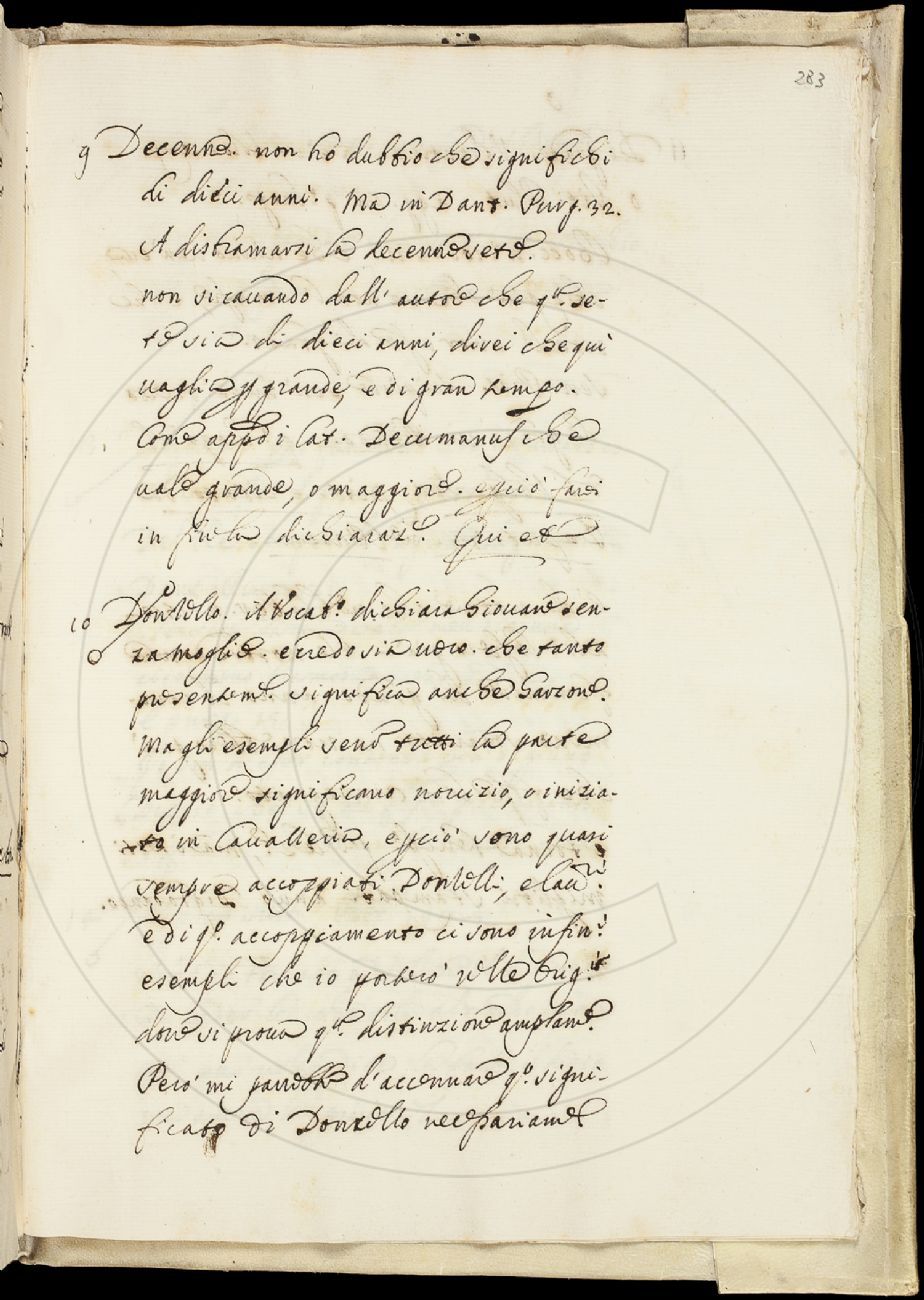 283
9 Decenne. non ho dubbio che significhi
di dieci anni. Ma in Dant. Purg. 32.
A disbramarsi la decenne sete.
non si cavando dall' autore che qta. se-
te sia di dieci anni, direi che qui
vaglia p grande, e di gran tempo.
Come appo i Lat. Decumanus che
vale grande, o maggiore. e pciò farei
in fine la dichiaraze. Qui et
10 Donzello. il Vocabo. dichiara Giovane sen-
za moglie. e credo sia vero. che tanto
presenteme. significa anche Garzone.
Ma gli esempli se nò tutti la parte
maggiore significano novizio, o inizia-
to in Cavalleria, e pciò sono quasi
sempre accoppiati Donzelli, e Cavri.
e di qo. accoppiamento ci sono infini.
esempli che io porterò nelle Orig.
dove si prova qta. distinzione amplame.
Però mi parrebbe d'accennare qo. signi-
ficato di Donzello necessariame